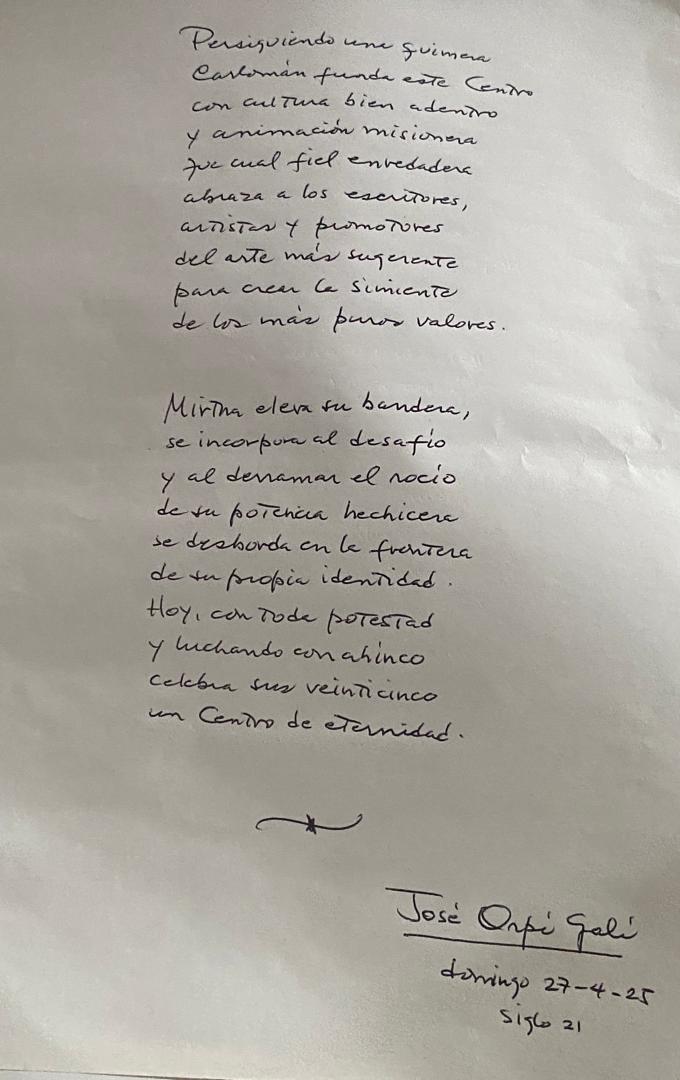 Persiguiendo una quimera
Carlomán funda este Centro
con cultura bien adentro
y animación misionera
que cual fiel enredadera
abraza a los escritores,
artistas y promotores
del arte más sugerente
para crear la simiente
de los más puros valores.
Mirtha eleva su bandera,
se incorpora al desafío
y al derramar el rocío
de su potencia hechicera
se desborda en la frontera
de su propia identidad.
Hoy, con toda potestad
y luchando con ahínco
celebra sus veinticinco
un Centro de eternidad.
José Orpí Galí
domingo 27-4-25
siglo 21